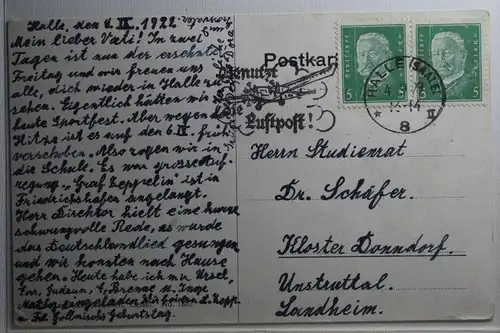 Halle, den 4. IX. 1922
Mein lieber Vati! In zwei
Tagen ist nun der ersehnte
Freitag und wir freuen uns
alle, dich wieder in Halle zu
sehen. Eigentlich hätten wir
heute Sportfest. Aber wegen der
Hitze ist es auf den 6. IX. früh
verschoben. Also zogen wir in
die Schule. Es war grosse Auf-
regung. „Graf Zeppelin" ist in
Friedrichshafen angelangt.
Herr Direktor hielt eine kurze
schwungvolle Rede, es wurde
das Deutschlandlied gesungen
und wir konnten nach Hause
gehen. Heute habe ich mir Ursel,
Gudrun, u. Inge
eingeladen. Wir feiern
u. Geburtstag.
Postkar
Benutzt
die
Luftpost!
Deutsches Reich
5 5
Deutsches Reich
5 5
HALLE (SAALE)
4
13-14
* 8 II
Herrn Studienrat
Dr. Schäfer.
Kloster Donndorf.
Unstruttal.
Landheim.